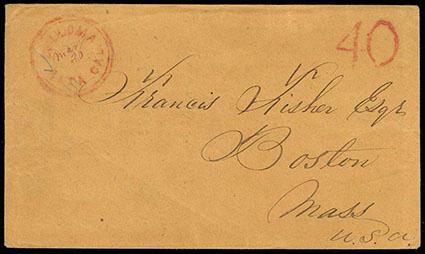 CULLOMA CAL
MAY
40
Francis Fisher Esqr
Boston
Mass
U.S.A.